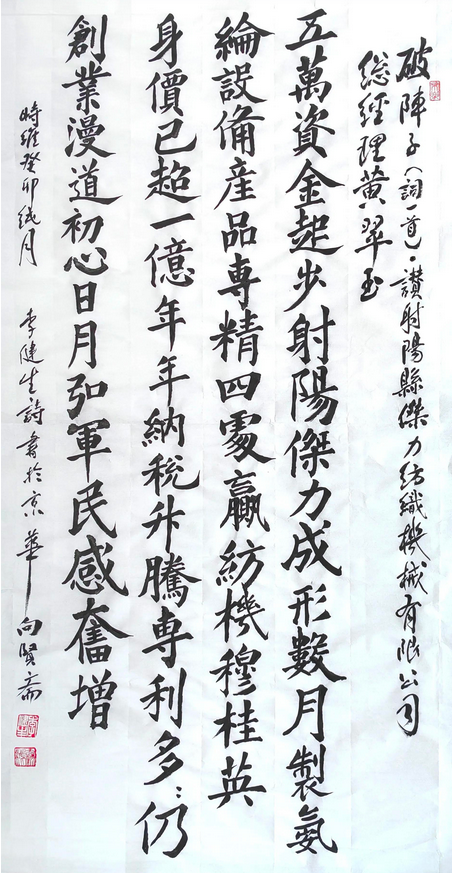 破陣子（詞一首）·讃射陽縣傑力紡織機械有限公司
総經理黃翠玉
五萬資金起步射陽傑力成形數月製氨
綸設備産品専精四處贏紡機穆桂英
身價已超一億年年納稅升騰専利多〻仍
創業漫道初心日月弘軍民感奮增
時維癸卯月 李健生詩書於京華向賢斎